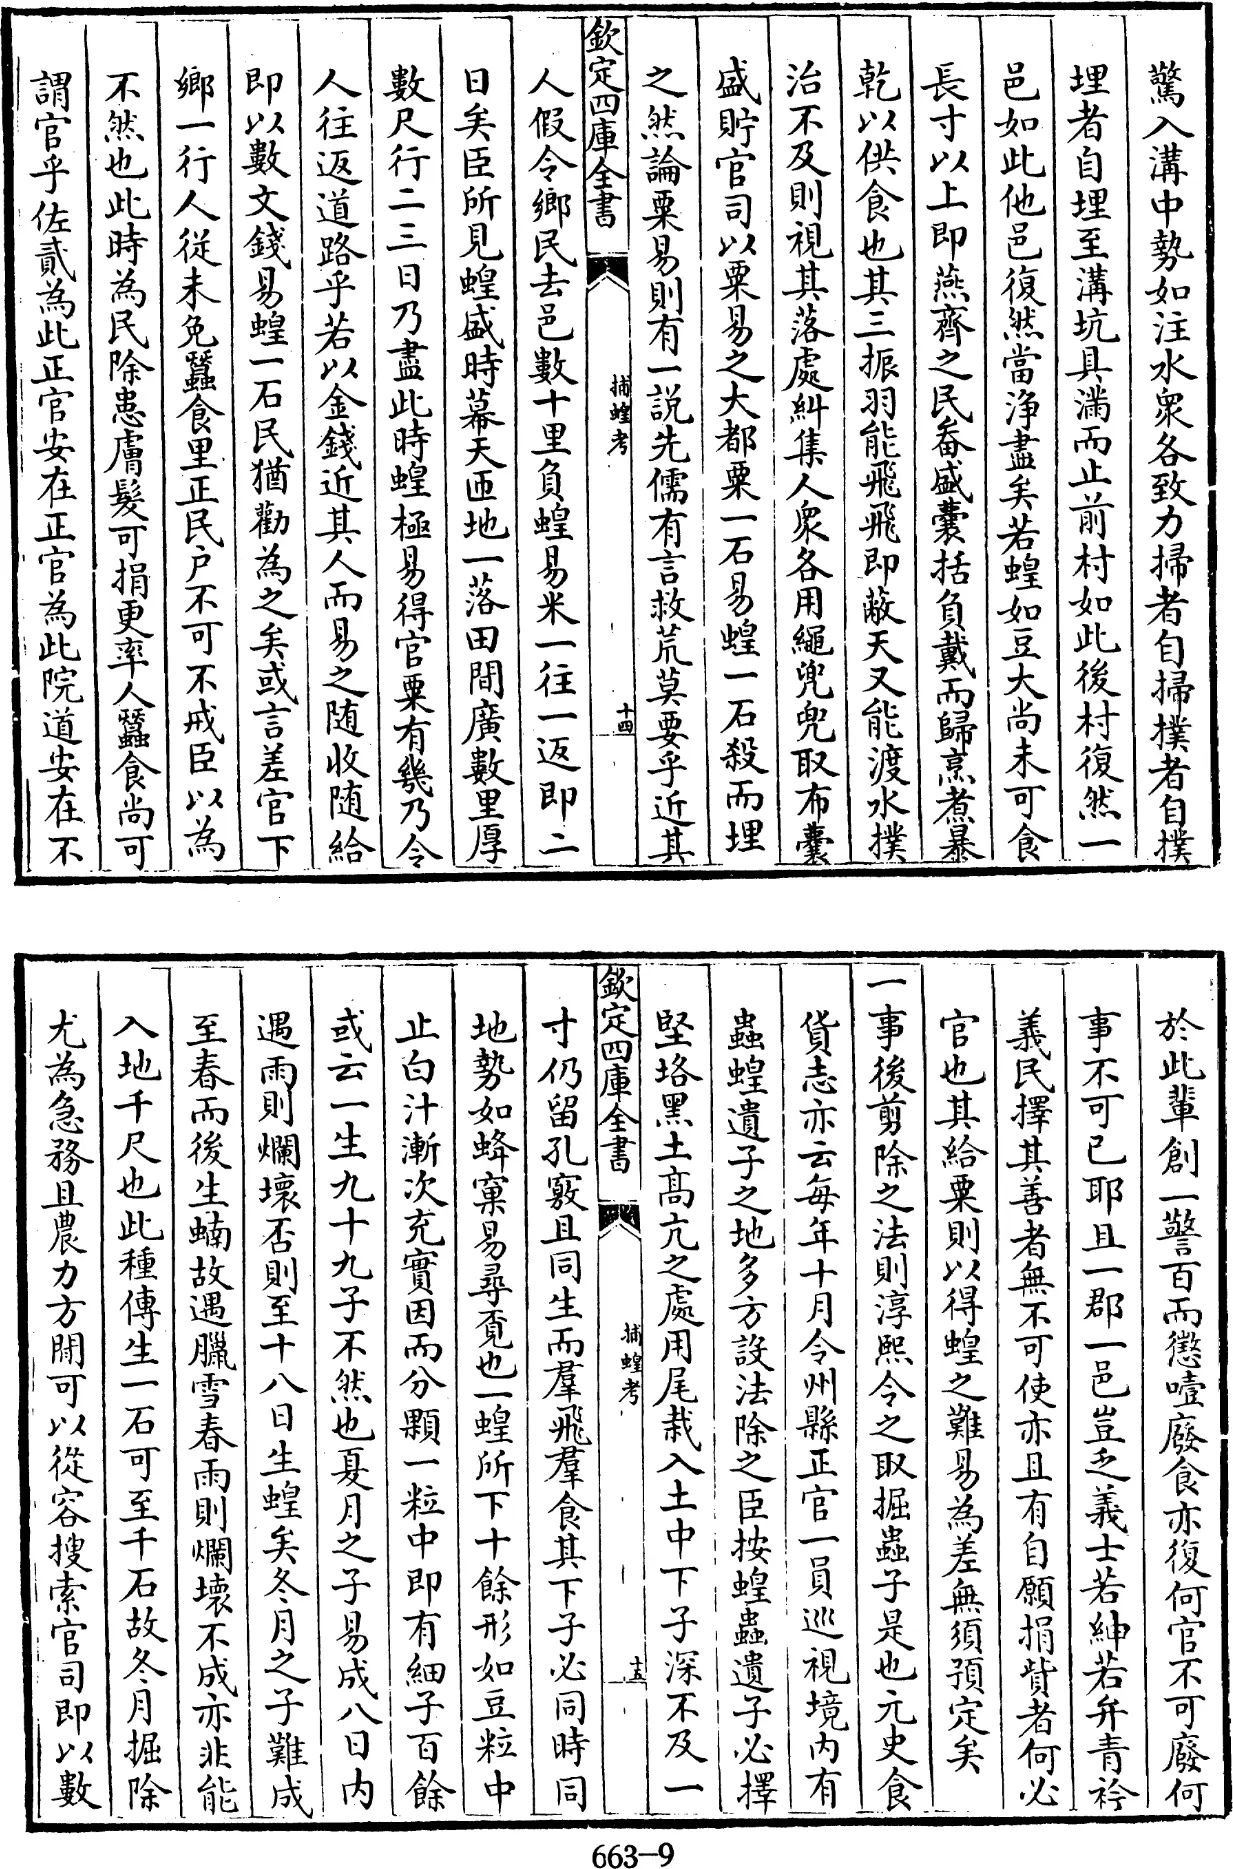 驚入溝中勢如注水衆各致力掃者自掃撲者自撲
埋者自埋至溝坑具滿而止前村如此後村復然一
邑如此他邑復然當浄盡矣若蝗如豆大尚未可食
長寸以上即燕齊之民畚盛囊括負戴而歸烹煮暴
乾以供食也其三振羽能飛飛即蔽天又能渡水撲
治不及則視其落處糾集人衆各用繩兜兜取布囊
盛貯官司以粟易之大都粟一石易蝗一石殺而埋
之然論粟易則有一説先儒有言救荒莫要乎近其
欽定四庫全書
捕蝗考
十四
人假令鄉民去邑數十里負蝗易米一往一返即二
日矣臣所見蝗盛時幕天匝地一落田間廣數里厚
數尺行二三日乃盡此時蝗極易得官粟有幾乃令
人往返道路乎若以金錢近其人而易之随收随給
即以數文錢易蝗一石民猶勸為之矣或言差官下
鄉一行人從未免蠶食里正民户不可不戒臣以為
不然也此時為民除患膚髮可捐更率人蠶食尚可
謂官乎佐貳為此正官安在正官為此院道安在不
於此輩創一警百而懲噎廢食亦復何官不可廢何
事不可已耶且一郡一邑豈乏義士若紳若弁青衿
義民擇其善者無不可使亦且有自願捐貲者何必
官也其給粟則以得蝗之難易為差無須預定矣
一事後剪除之法則淳熙令之取掘蟲子是也元史食
貨志亦云每年十月令州縣正官一員巡視境内有
蟲蝗遺子之地多方設法除之臣按蝗蟲遺子必擇
堅垎黑土高亢之處用尾栽入土中下子深不及一
欽定四庫全書
捕蝗考
十五
寸仍留孔竅且同生而羣飛羣食其下子必同時同
地勢如蜂窠易尋覓也一蝗所下十餘形如豆粒中
止白汁漸次充實因而分顆一粒中即有細子百餘
或云一生九十九子不然也夏月之子易成八日内
遇雨則爛壞否則至十八日生蝗矣冬月之子難成
至春而後生蝻故遇臘雪春雨則爛壞不成亦非能
入地千尺也此種傳生一石可至千石故冬月掘除
尤為急務且農力方閒可以從容搜索官司即以數
663-9